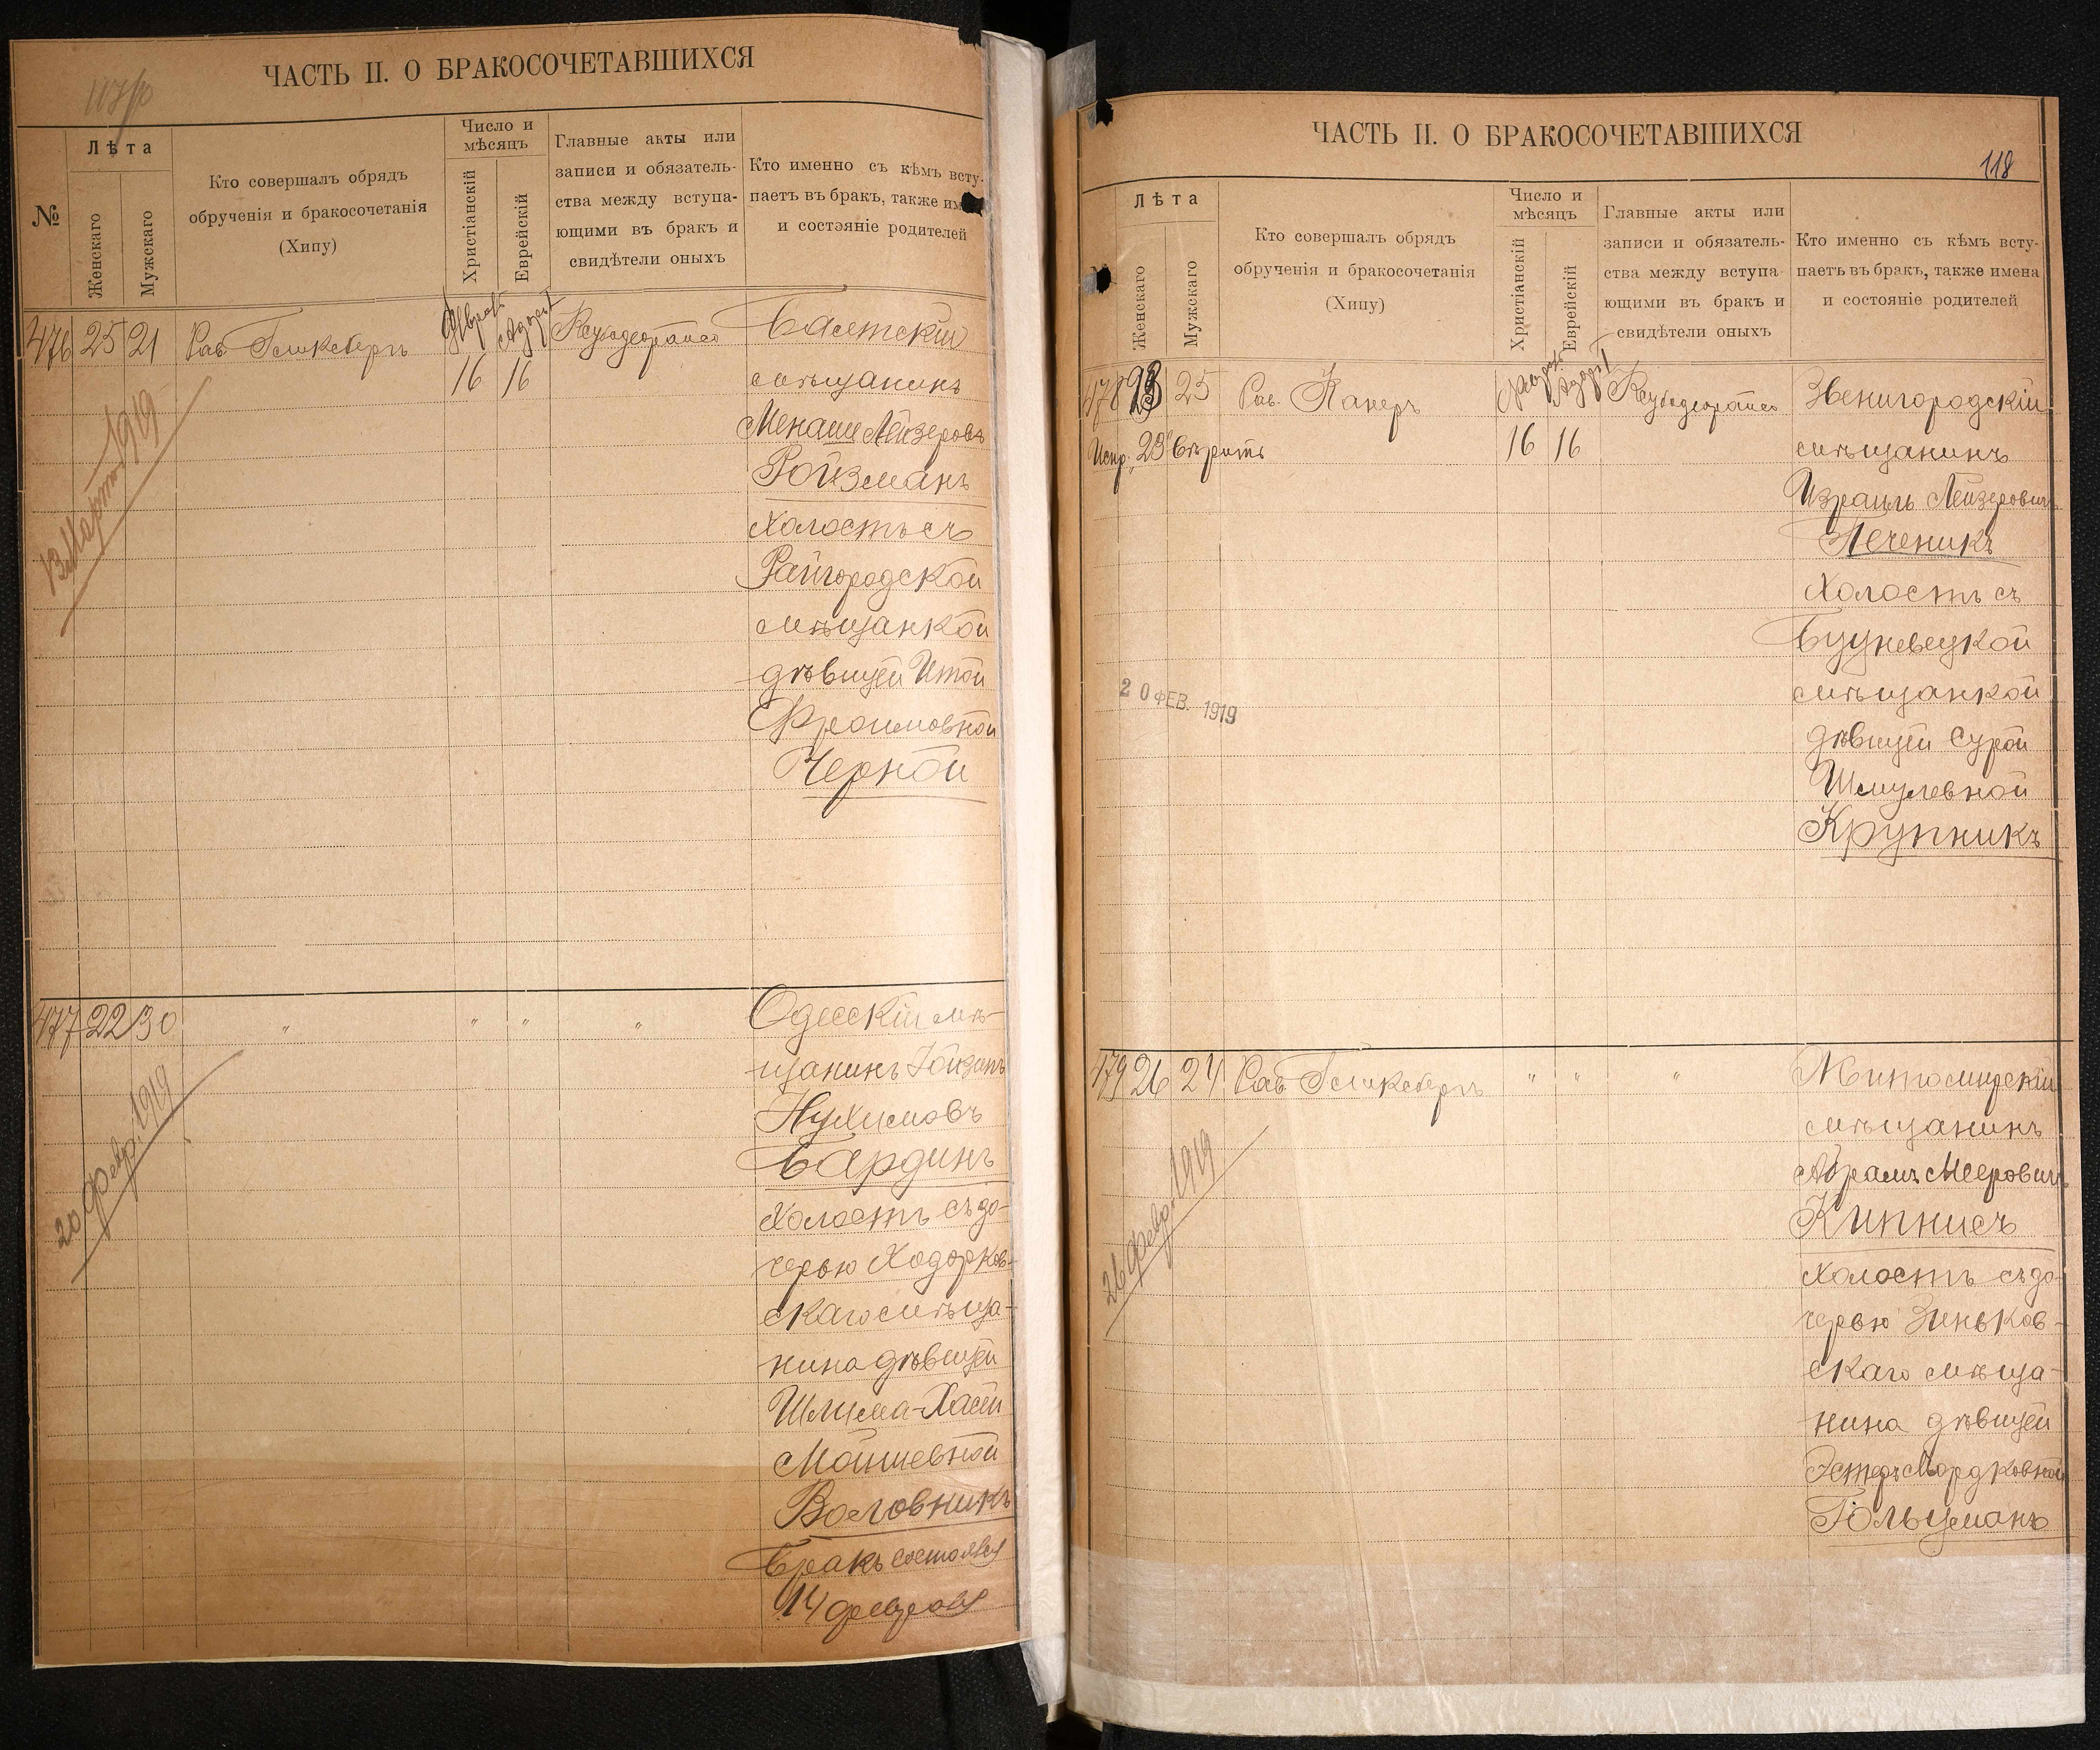 ЧАСТЬ II. О БРАКОСОЧЕТАВШИХСЯ
№
Лѣта
Женскаго
Мужскаго
Кто совершалъ обрядъ
обрученія и бракосочетанія
(Хипу)
Число и
мѣсяцъ
Христіанскій
Еврейскій
Главные акты или
записи и обязатель-
ства между вступа-
ющими въ бракъ и
свидѣтели оныхъ
Кто именно съ кѣмъ всту-
паетъ въ бракъ, также им
и состояніе родителей
476 25 21 Рав.
16 16
мѣщанинъ
Менаше Лейзеровъ
Ройзманъ
холостъ съ
Райгородской
мѣщанкой
дѣвицей Итой
Фроимовной
Черной
13 Марта 1919
477 22 30 " " " " Одесскій мѣ-
щанинъ
Нухимовъ
Бардинъ
холостъ съ до-
черью Ходорков-
скаго мѣща-
нина дѣвицей
Шлима-Хася
Мошшевной
Воловникъ
Бракъ состоялся
14 февраля
20 февр. 1919
ЧАСТЬ II. О БРАКОСОЧЕТАВШИХСЯ
118
Лѣта
Женскаго
Мужскаго
Кто совершалъ обрядъ
обрученія и бракосочетанія
(Хипу)
Число и
мѣсяцъ
Христіанскій
Еврейскій
Главные акты или
записи и обязатель-
ства между вступа
ющими въ бракъ и
свидѣтели оныхъ
Кто именно съ кѣмъ всту-
паетъ въ бракъ, также имена
и состояніе родителей
478 23 25 Рав. Канеръ Звенигородскій
Испр. „23" вѣрить 16 16 мѣщанинъ
Израиль Лейзеровичъ
Печеникъ
холостъ съ
мѣщанкой
дѣвицей Сурой
Шмулевной
Крупникъ
20 ФЕВ. 1919
479 26 24 Рав. " " " Житомирскій
мѣщанинъ
Абрамъ Мееровичъ
Кипнисъ
холостъ съ до-
черью Зеньков-
скаго мѣща-
нина дѣвицей
Эстеръ Мордковной
Гольцманъ
26 февр. 1919